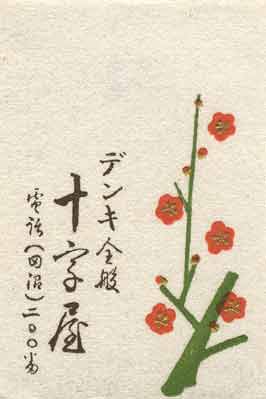 デンキ全般
十字屋
電話(田沼)二〇〇番